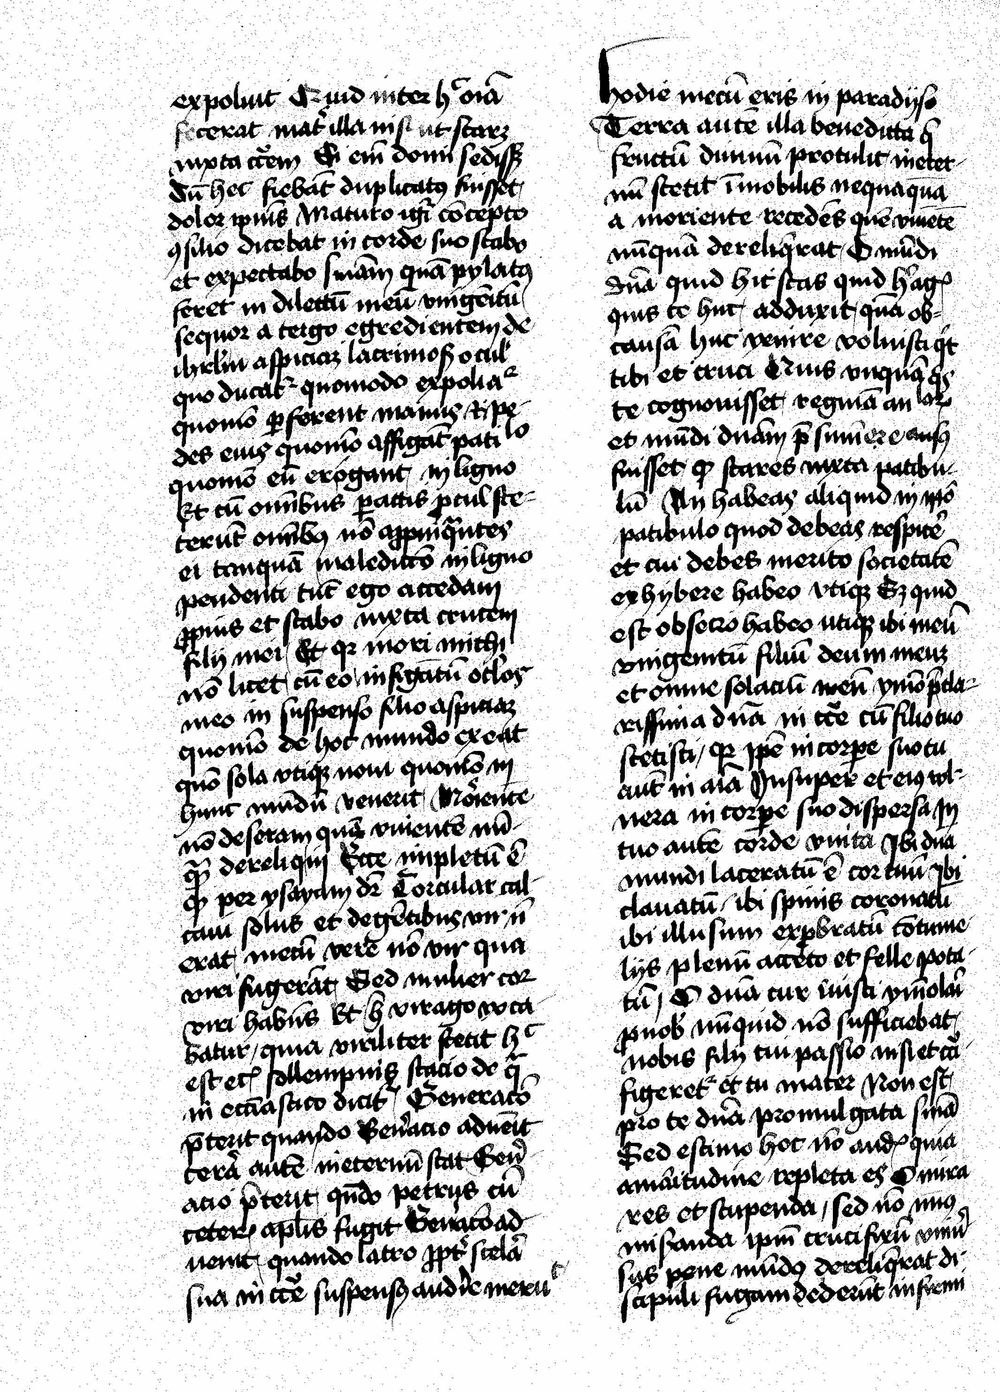 expoluit Quid inter hᶜ oīa
fecerat mat̄ illa nisi ut staret
iuxta cͨem Si em̄ domi sedisset
dū hec fiebāt duplicatꝰ fuisset
dolor ipīus Maturo igr̄ cōcepto
ꝯsilio dicebat in corde suo stabo
et expectabo sniam quā pylatꝰ
feret in dilectū meū vnigenitū
sequor a tergo egredientem de
ihrlm aspiciaz lacrimos ocul
quo ducatᷣ quomodo expoliaᷣ
quomō ꝑforent manus et pe
des eius quomō affigāt patilo
quomō eū erogant in ligno
Et cū omībus ꝑactis ꝓcul ste-
terūt omībꝫ nō appinq̄ntes
ei tanquā maledicto in ligno
pendenti tūc ego accedam
ꝓpius et stabo iuxta crucem
filij mei Et qꝛ mori michi
nō licet cū eo infigātū oclos
meo in suspenso filio aspiciaz
quomō de hoc mundo exeat
quō sola vtiqꝫ noui quomō in
hunc mūdū venerit Moriente
nō deseram quē viuentē nū-
qͣ dereliqui Ecce impletū ē
qͩ per ysayam dr̄ Torcular cal-
caui solus et de gētibus vir nō
erat mecū vere nō vir quia
viri fugerāt Sed mulier cor
viri habuit Et h̄ virago voca
batur quia viriliter stetit hᶜ
est ecꝫ sollempnis stacio de qͣ
in ecciastico dicitᷣ Generacō
p̄terit quando Generacio aduenit
terā autē ineternū stat Gen̄
acio p̄terit qn̄do petrus cū
ceteris aplis fugit Generacō ad
uenit quando latro ꝓpt̄ scelā
sua in cͨe suspensꝰ audire meruᵗ
hodie mecū eris in paradyso
Terra autē illa benedicta q̄
fructū diuinū protulit ineter-
nū stetit īmobilis nequaquā
a moriente recedēs quē viuētē
nūquā dereliqrat O mūdi
dn̄a quid hic stas quid h̄ agꝭ
quis te huc adduxit quā ob-
causā huc venire voluisti q̄d
tibi et cruci Quis vnquā qͥ
te cognouisset reginā anlorꝫ
et mūdi dnām p̄sumere ausꝰ
fuisset qͩ stares iuxta patibu-
lū An habeas aliquid in isto
patibulo quod debeas respice
et cui debes merito societatē
exhybere habeo vtiqꝫ Sꝫ quid
est obsecro habeo utiqꝫ ibi meū
vnigenitū filiū deum meuꝫ
et omne solaciū meū ymo p̄cla-
rissima dn̄a in cͨe cū filio tuo
stetisti qꝛ ipē in corpe suo tu
aūt in aīa Insuper et eius vl-
nera in corpe suo dispersa In
tuo autē corde vnita Ibi dn̄a
mundi laceratū ē cor tuū Ibi
clauatū ibi spinis coronatū
ibi illusum expbratū cōtume
lijs plenū aceto et felle pota-
tū O dn̄a cur iuisti ymolari
p nob nūquid nō sufficiebat
nobis filij tui passio nisi et cͨi
figeretᷣ et tu mater Non est
pro te dn̄a promulgata sniā
Sed estimo hoc nō audꝭ quia
amaritudine repleta es O mira
res et stupenda sed nō minꝰ
misranda ipm̄ crucifixū vniuer
sus pene mūdꝰ dereliqrat di-
scipuli fugam dederūt infirmi